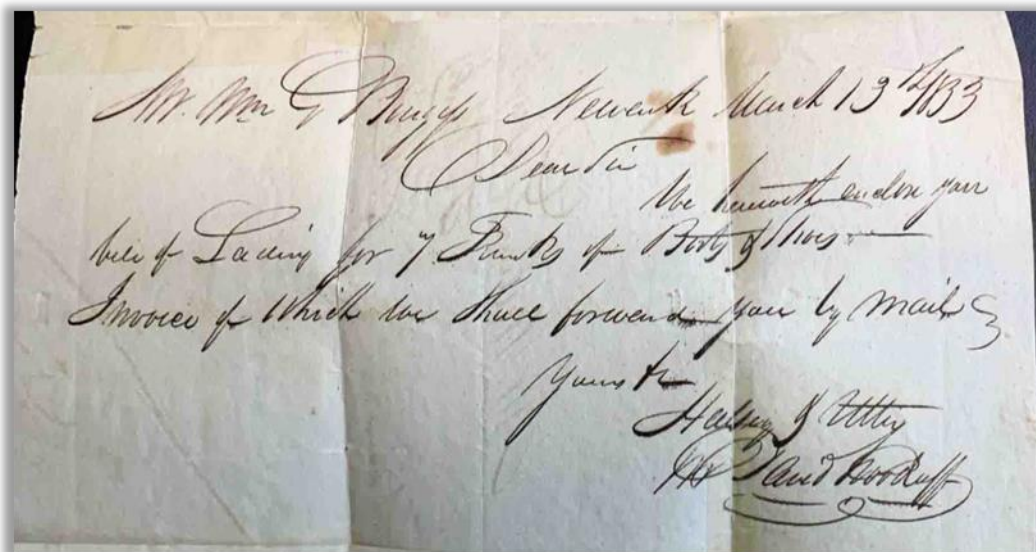 Mr. Wm G Buggs Newark March 13th 1833
Dear Sir
We herewith enclose you
bill of Lading for 7 Trunks of Boots & Shoes
Invoice of Which we Shall forward you by Mail
Yours &c
Halsey & Utter
David Woodruff